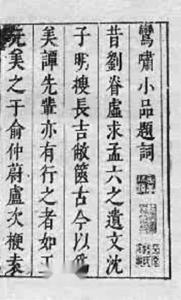 鸞嘯小品題詞
昔劉眘虛求孟六之遺文沈
子明搜長吉敝篋古今以爲
美譚先輩亦有行之者如王
元美之于俞仲蔚盧次楩袁